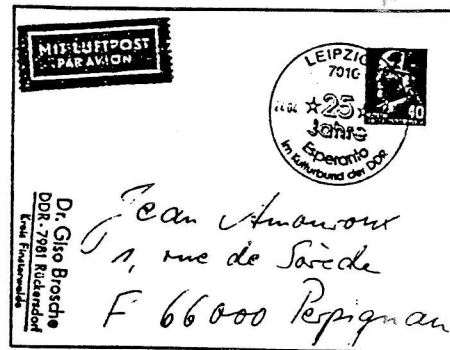 MIT LUFTPOST
PAR AVION
LEIPZIG
7010
☆25☆
Jahre
Esperanto
im Kulturbund der DDR
40
Dr. Giso Brosche
DDR-7981 Rückersdorf
Kreis Finsterwalde
Jean Amouroux
1, rue de Sorède
F 66000 Perpignan